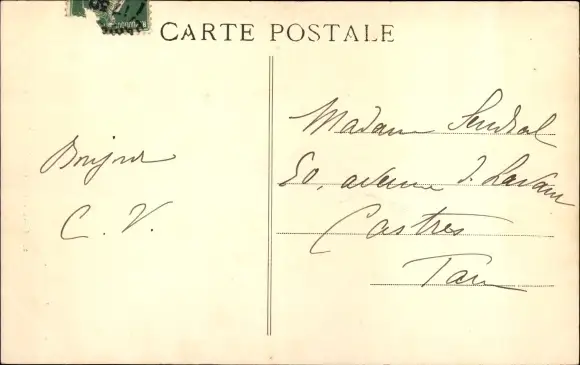 CARTE POSTALE
Bonjour
C. V.
Madame Sendral
50, avenue d. Lavaur
Castres
Tarn